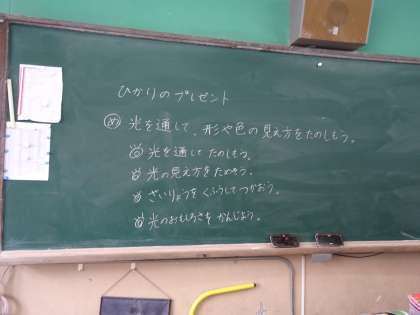 ひかりのプレゼント
め 光を通して、形や色の見え方をたのしもう。
光を通してたのしもう。
光の見え方をためそう。
ざいりょうをくふうしてつかおう。
光のおもしろさをかんじよう。